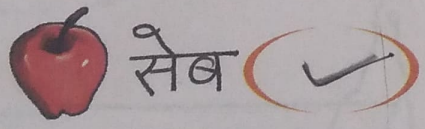 सेब